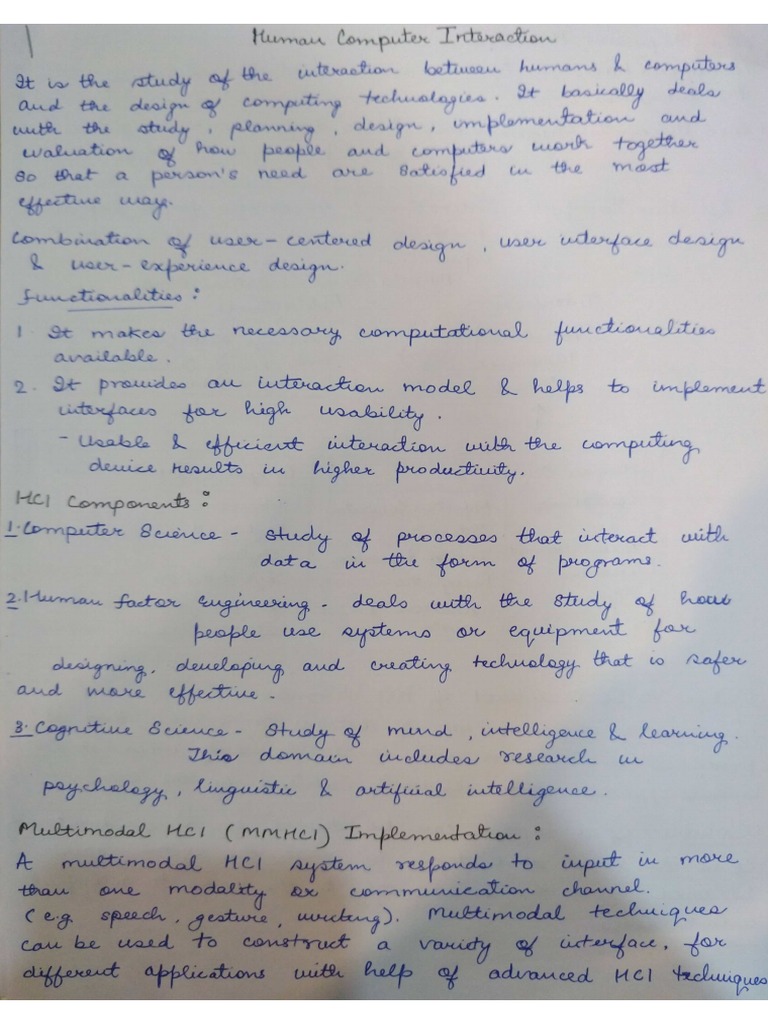 Human Computer Interaction
It is the study of the interaction between humans & computers
and the design of computing technologies. It basically deals
with the study, planning, design, implementation and
evaluation of how people and computers work together
so that a person's need are satisfied in the most
effective way.
Combination of user-centered design, user interface design
& user-experience design.
Functionalities:
1 It makes the necessary computational functionalities
available.
2. It provides an interaction model & helps to implement
interfaces for high usability.
- Usable & efficient interaction with the computing
device results in higher productivity.
HCI Components:
1. Computer Science - study of processes that interact with
data in the form of programs.
2. Human factor Engineering - deals with the study of how
people use systems or equipment for
designing, developing and creating technology that is safer
and more effective.
3. Cognitive Science - Study of mind, intelligence & learning.
This domain includes research in
psychology, linguistic & artificial intelligence.
Multimodal HCI (MMHCI) Implementation:
A multimodal HCI system responds to input in more
than one modality or communication channel.
(e.g. speech, gesture, writing). Multimodal techniques
can be used to construct a variety of interface, for
different applications with help of advanced HCI techniques